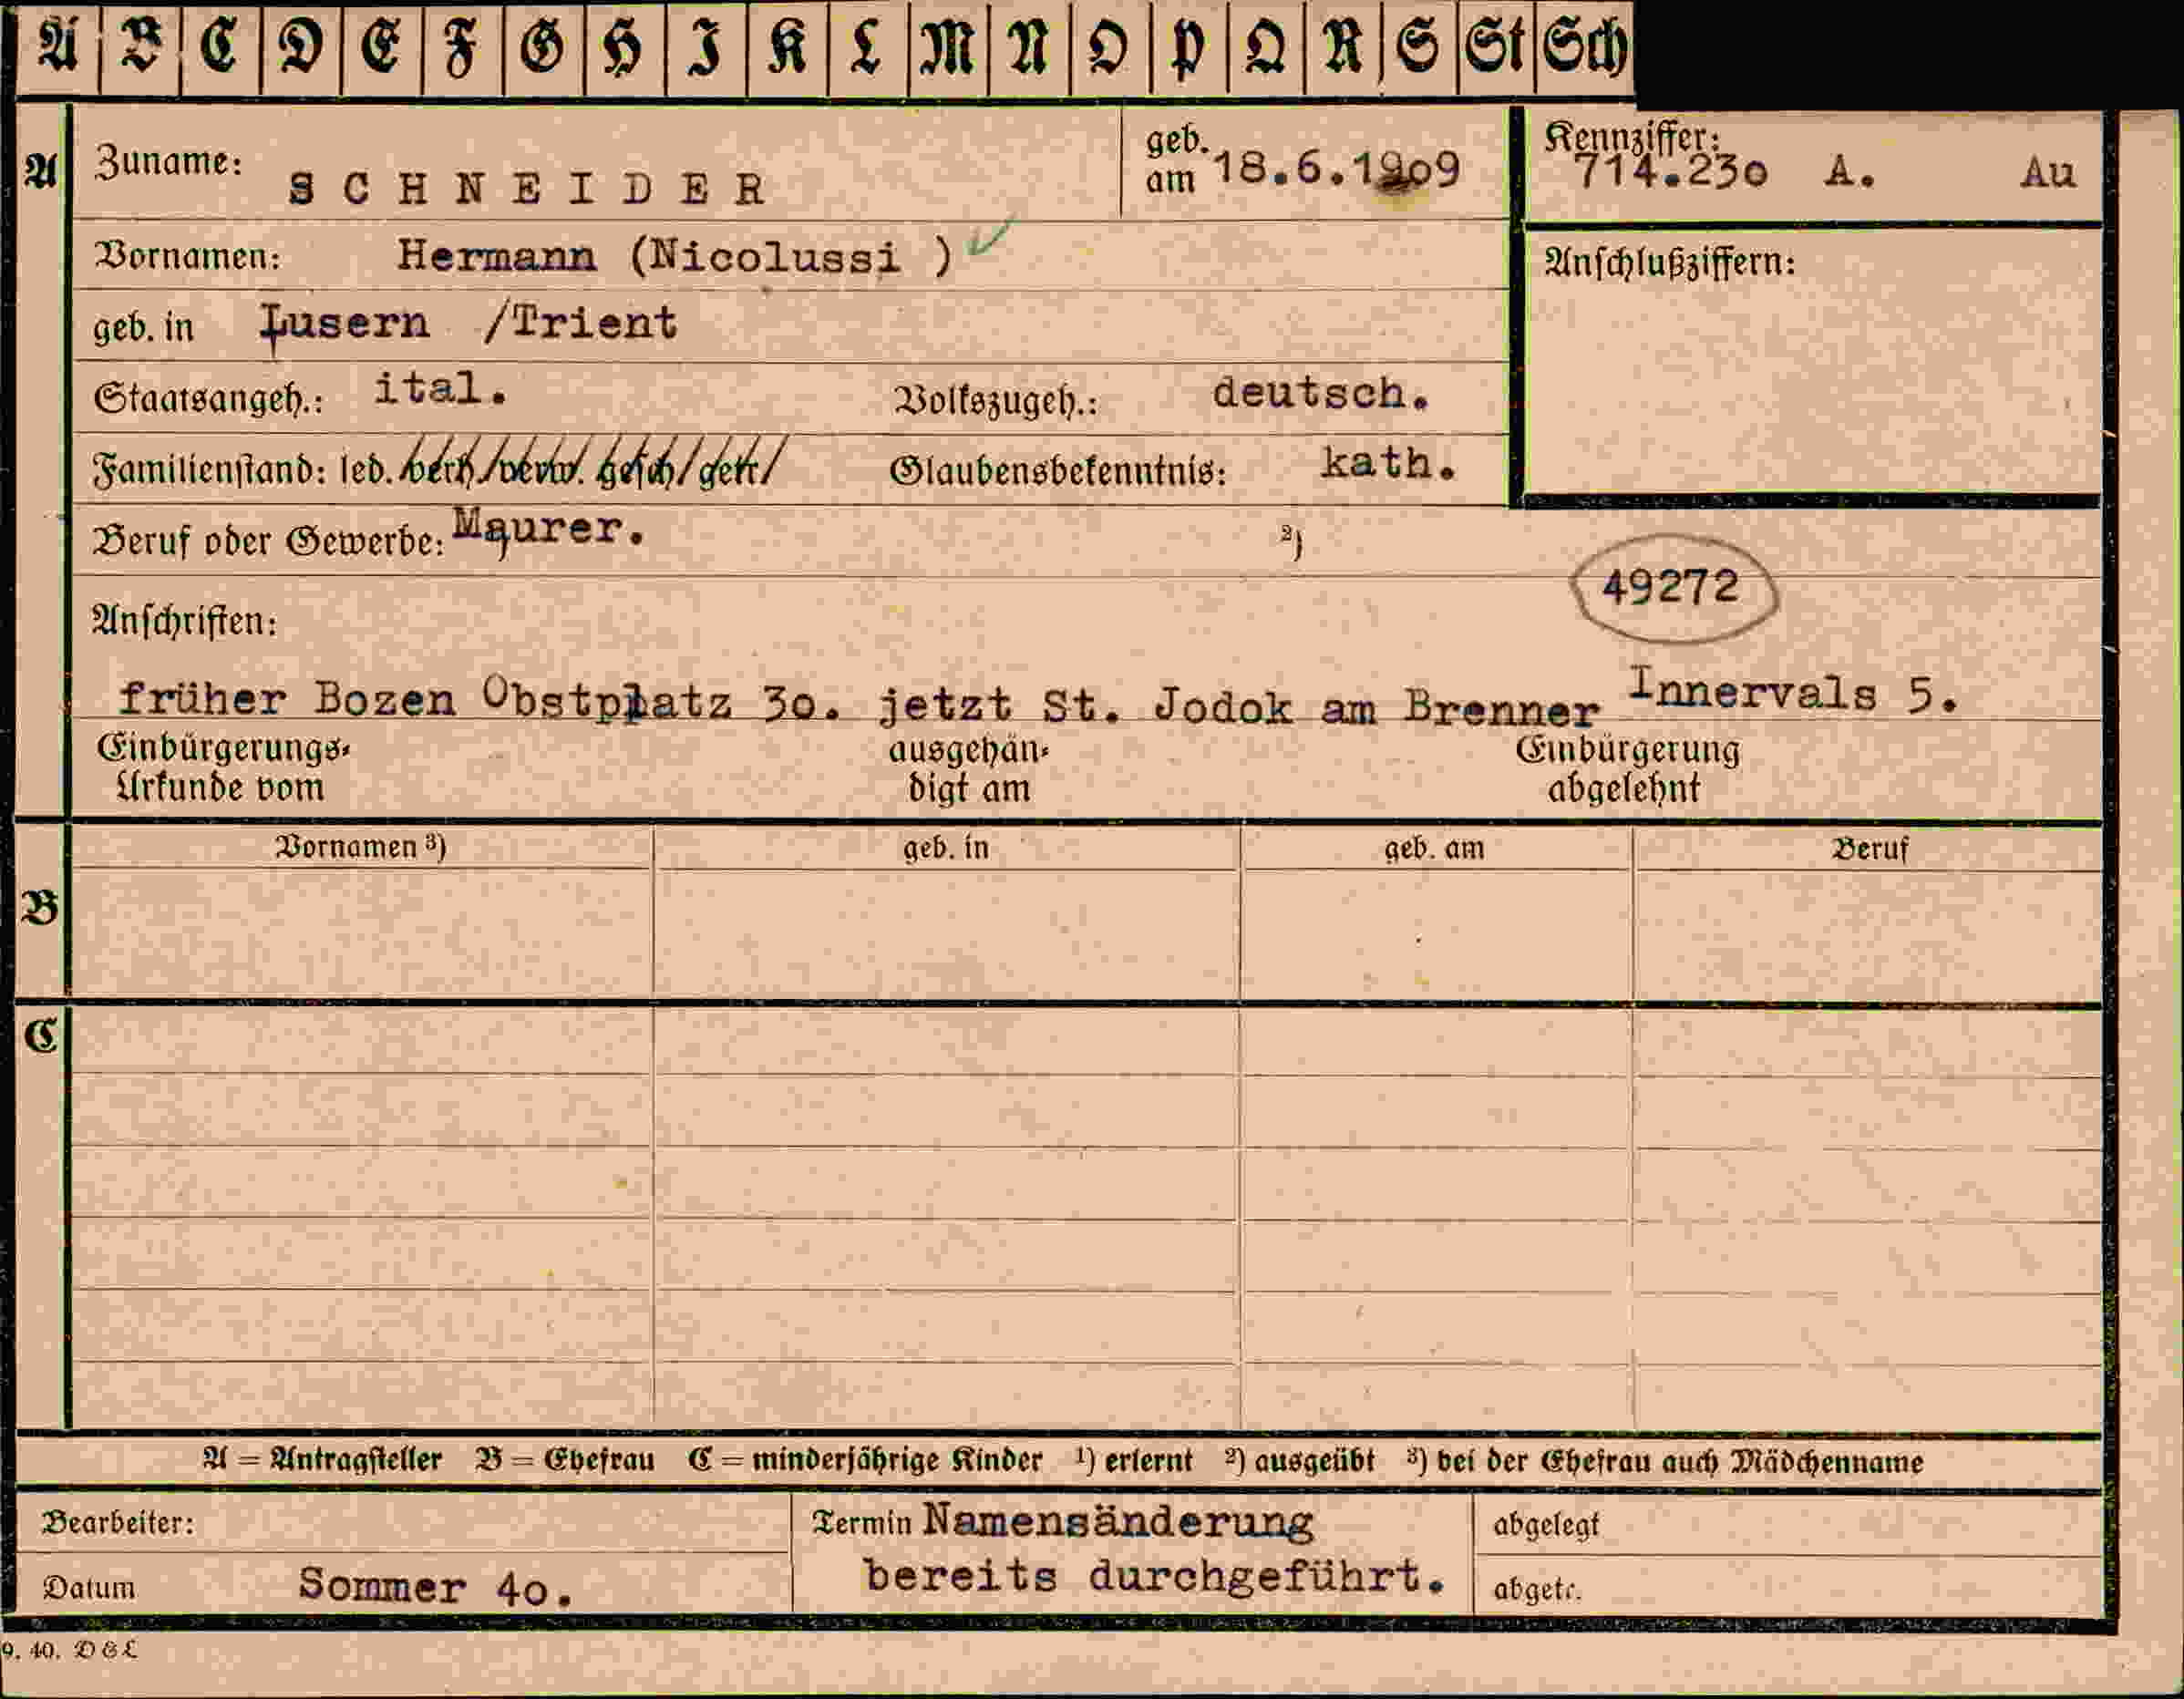 A B C D E F G H I K L M N O P Q R S St Sch
A
Zuname: SCHNEIDER
geb. am 18.6.1909
Kennziffer: 714.230 A. Au
Vornamen: Hermann (Nicolussi )
Anschlußziffern:
geb. in Lusern /Trient
Staatsangeh.: ital. Volkszugeh.: deutsch.
Familienstand: led. verh. verw. gesch. getr. Glaubensbekenntnis: kath.
Beruf oder Gewerbe: Maurer. ²)
49272
Anschriften:
früher Bozen Obstplatz 30. jetzt St. Jodok am Brenner Innervals 5.
Einbürgerungs-Urkunde vom ausgehändigt am Einbürgerung abgelehnt
Vornamen ³) geb. in geb. am Beruf
B
C
A = Antragsteller B = Ehefrau C = minderjährige Kinder ¹) erlernt ²) ausgeübt ³) bei der Ehefrau auch Mädchenname
Bearbeiter: Termin Namensänderung abgelegt
Datum Sommer 40. bereits durchgeführt. abgetr.
9. 40. DGL